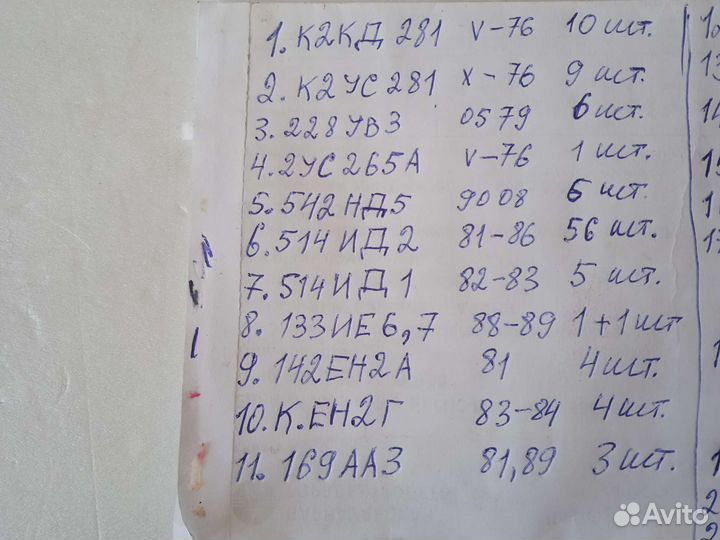 1. К2КД 281 V-76 10 шт.
2. К2УС 281 X-76 9 шт.
3. 228УВ3 0579 6 шт.
4. 2УС 265А V-76 1 шт.
5. 542 НД5 9008 6 шт.
6. 514 ИД 2 81-86 56 шт.
7. 514 ИД 1 82-83 5 шт.
8. 133ИЕ6,7 88-89 1+1 шт
9. 142ЕН2А 81 4 шт.
10. К.ЕН2Г 83-84 4 шт.
11. 169АА3 81,89 3 шт.
Avito